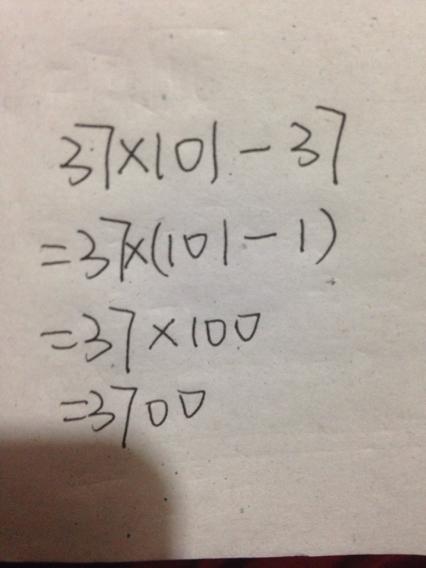 37×101-37
=37×(101-1)
=37×100
=3700